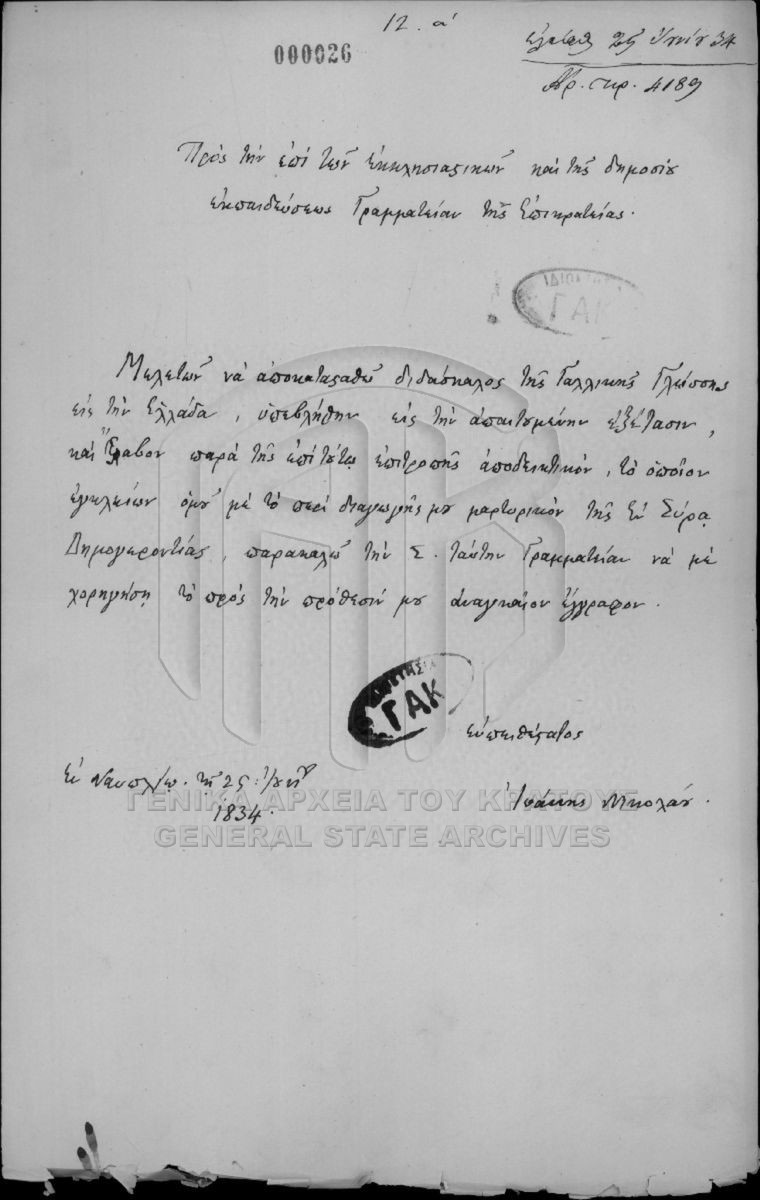 12. α΄
000026
ἐλήφθη 25 Ἰουνίου 34
Ἀρ. πρ. 4189
Πρὸς τὴν ἐπὶ τῶν Ἐκκλησιαστικῶν καὶ τῆς δημοσίου
ἐκπαιδεύσεως Γραμματείαν τῆς Ἐπικρατείας.
ΙΔΙΟΚΤΗΣΙΑ
ΓΑΚ
Μελετῶν νὰ ἀποκατασταθῶ διδάσκαλος τῆς Γαλλικῆς Γλώσσης
εἰς τὴν Ἑλλάδα, ὑπεβλήθην εἰς τὴν ἀπαιτουμένην ἐξέτασιν,
καὶ ἔλαβον παρὰ τῆς ἐπὶ τούτῳ ἐπιτροπῆς ἀποδεικτικὸν, τὸ ὁποῖον
ἐγκλείων ὁμοῦ μὲ τὸ περὶ διαγωγῆς μου μαρτυρικὸν τῆς ἐν Σύρᾳ
Δημογεροντίας, παρακαλῶ τὴν Σ. ταύτην Γραμματείαν νὰ μὲ
χορηγήσῃ τὸ πρὸς τὴν πρόθεσίν μου ἀναγκαῖον ἔγγραφον.
ΙΔΙΟΚΤΗΣΙΑ
ΓΑΚ
εὐπειθέστατος
Ἐν Ναυπλίῳ. τῇ 25 Ἰουνίου
1834.
Ἰωάννης Νικολάου.
ΓΕΝΙΚΑ ΑΡΧΕΙΑ ΤΟΥ ΚΡΑΤΟΥΣ
GENERAL STATE ARCHIVES